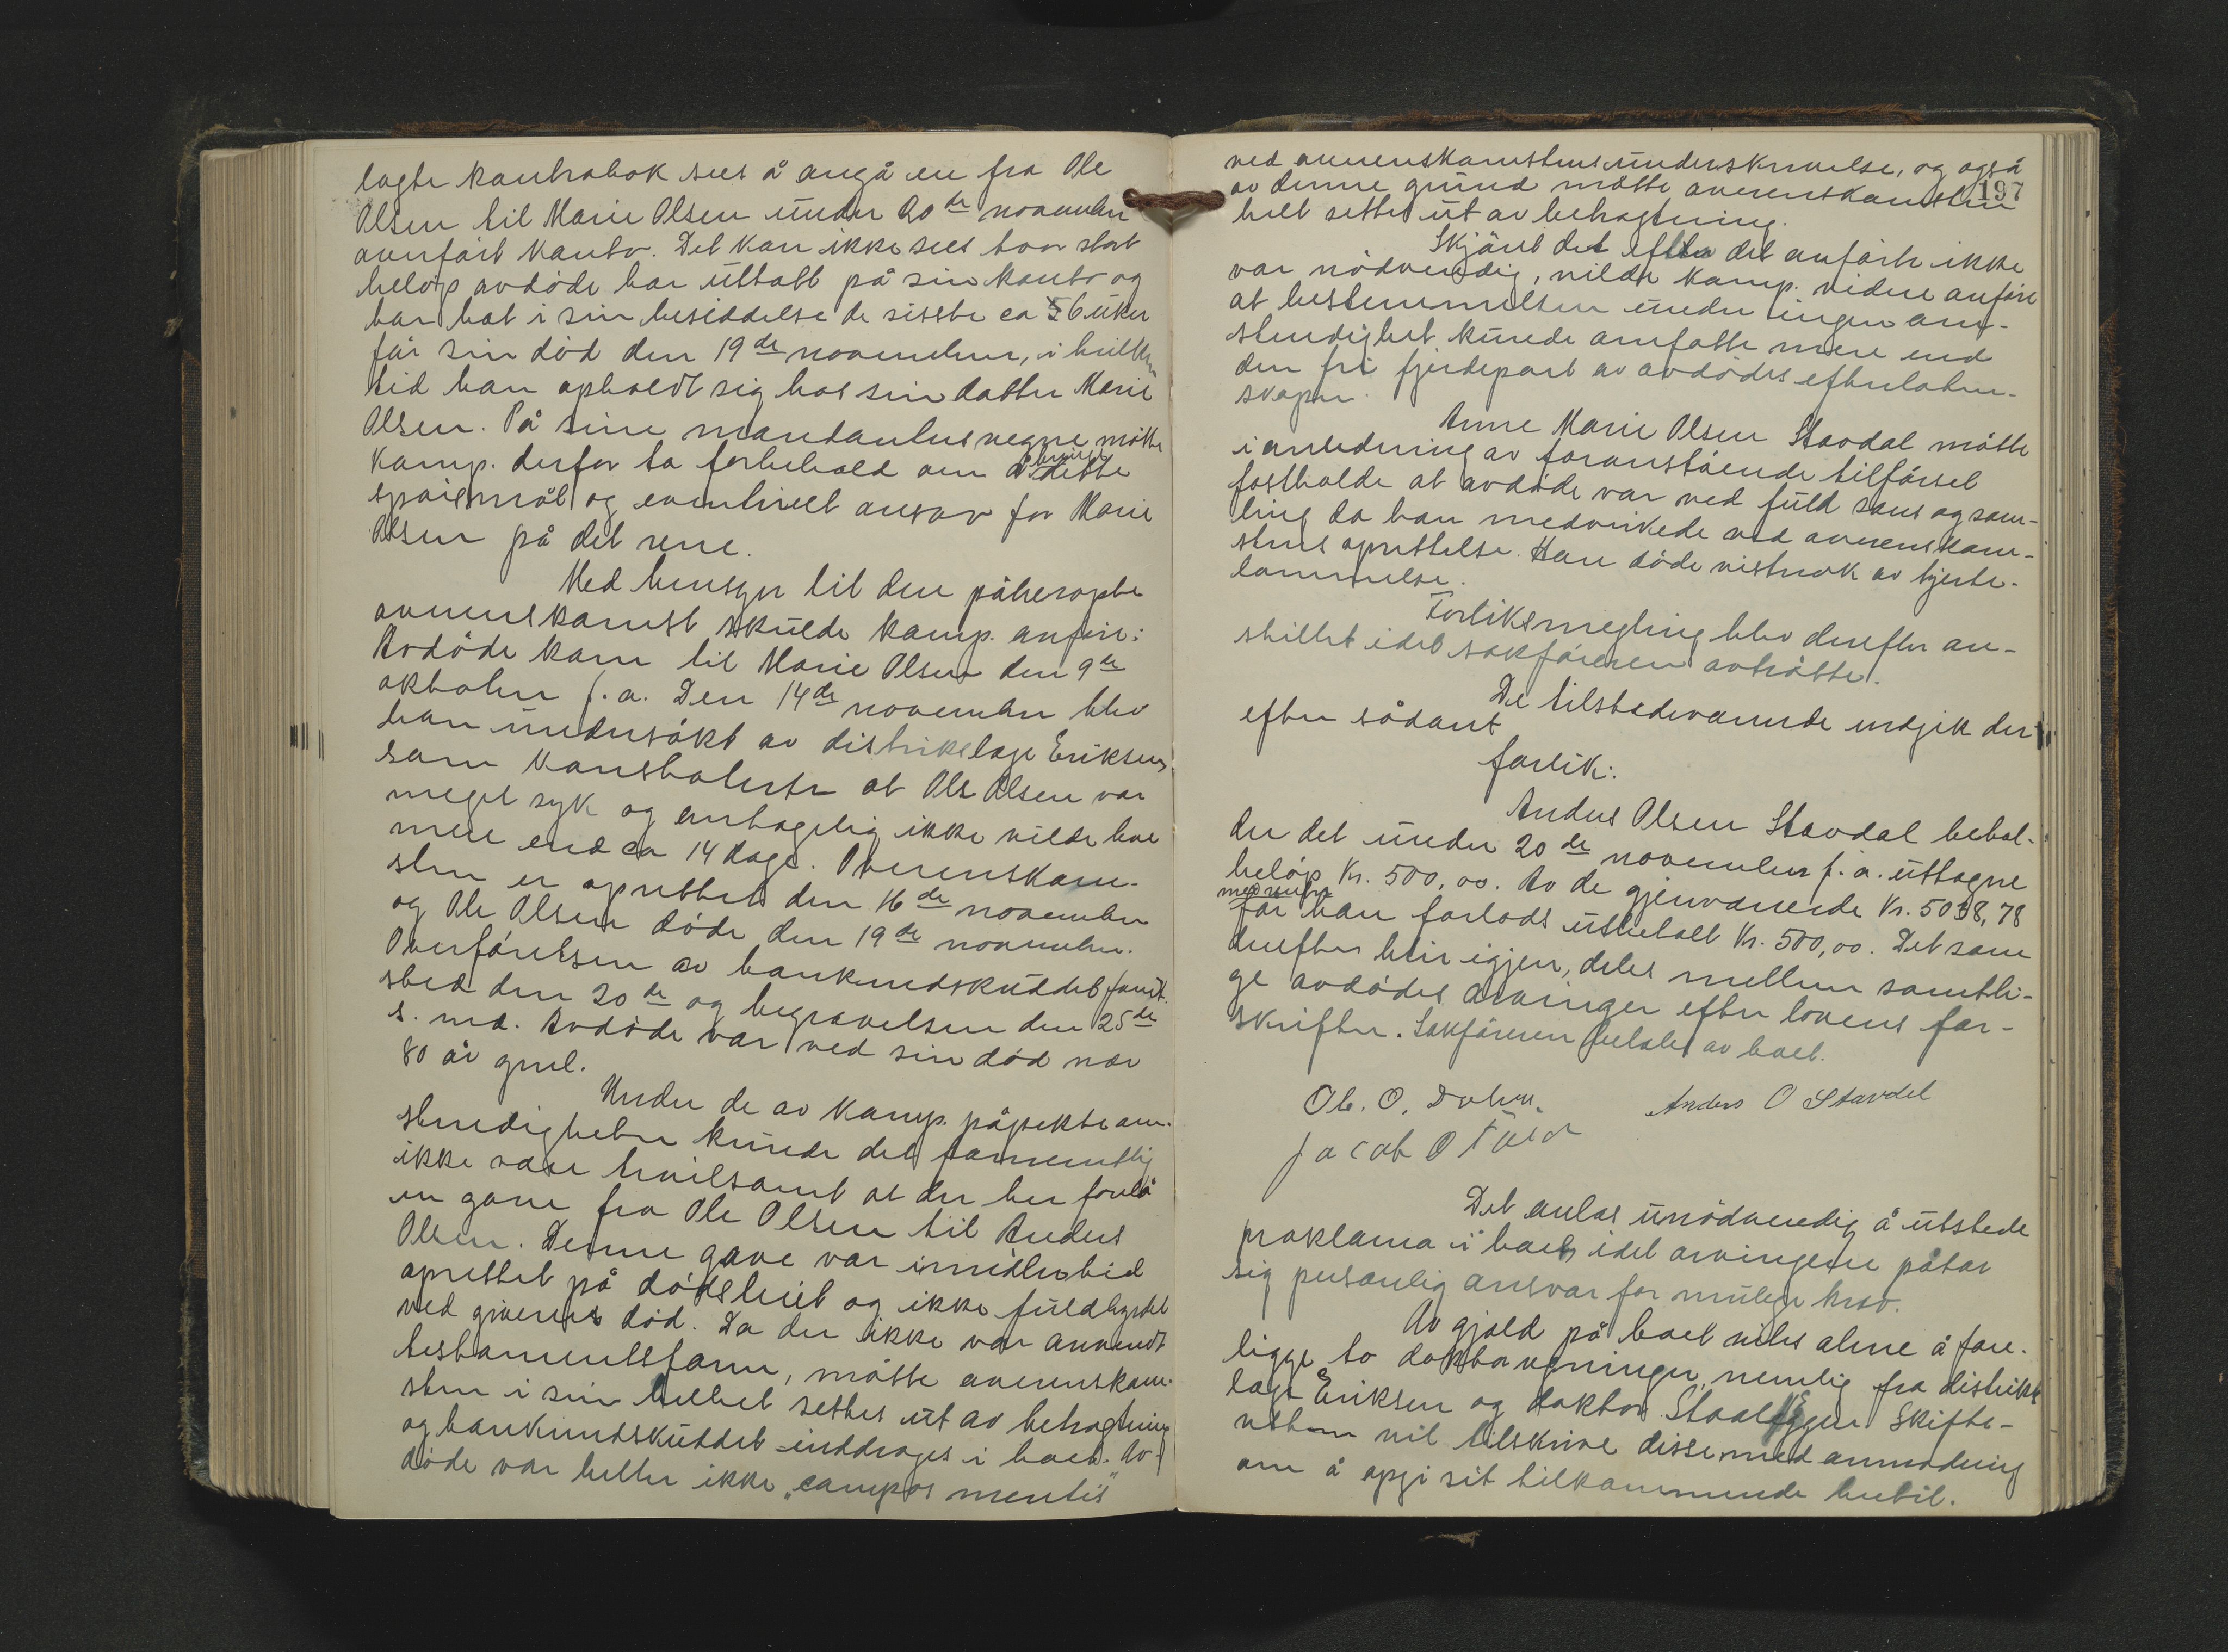 lagte kontrabok sees å angå en fra Ole
Olsen til Marie Olsen under 20de november
overført konto. Det kan ikke sees hvor stort
beløp avdøde har uttatt på sin konto og
har hat i sin besiddelse de sisste ca 6 uker
før sin død den 19de november, i hvilken
tid han opholdt sig hos sin datter Marie
Olsen. På sine mandanters vegne måtte
Komp. derfor ta forbehold om å bringe dette
spørsmål og eventuelt ansvar for Marie
Olsen på det rene.
Med hensyn til den påberopte
overenskomst skulde Komp. anføre:
Avdøde kom til Marie Olsen den 9de
oktober f. a. Den 14de november blev
han undersøkt av distrikslæge Eriksen,
som konstaterte at Ole Olsen var
meget syk og antagelig ikke vilde leve
mere end ca 14 dage. Overenskom-
sten er oprettet den 16de november
og Ole Olsen døde den 19de november.
Overførelsen av bankindskuddet fandt
sted den 20de og begravelsen den 25de
s. md. Avdøde var ved sin død nær
80 år gml.
Under de av Komp. påpekte om-
stendigheter kunde det formentlig
ikke være tvilsomt at der her forelå
en gave fra Ole Olsen til Anders
Olsen. Denne gave var imidlertid
oprettet på dødsleiet og ikke fuldbyrdet
ved giverens død. Da der ikke var anvendt
testamentsform, måtte overenskom-
sten i sin helhet settes ut av betragtning
og bankindskuddet inddrages i boet. Av-
døde var heller ikke „compos mentis"
197
ved overenskomstens underskrivelse, og også
av denne grund måtte overenskomsten
helt settes ut av betragtning.
Skjønt det efter det anførte ikke
var nødvendig, vilde Komp. videre anføre
at bestemmelsen under ingen om-
stendighet kunde omfatte mere end
den fri fjerdepart av avdødes efterlaten-
skaper.
Anne Marie Olsen Stavdal måtte
i anledning av foranstående tilførsel
fastholde at avdøde var ved fuld sans og sam-
ling da han medvirkede ved overenskom-
stens oprettelse. Han døde vistnok av hjerte-
lammelse.
Forliksmegling blev derefter an-
stillet idet sakføreren avtrådte.
De tilstedeværende indgik der-
efter sådant
forlik:
Anders Olsen Stavdal behol-
der det under 20de november f. a. uttagne
beløp Kr. 500,00. Av de gjenværende Kr. 5038,78
med renter
får han forlods utbetalt Kr. 500,00. Det som
derefter blir igjen, deles mellem samtli-
ge avdødes arvinger efter lovens for-
skrifter. Sakføreren betales av boet.
Ole. O. Dolven. Anders O Stavdel
Jacob O
Det anlas unødvendig å utstede
proklama i boet, idet arvingene påtar
sig personlig ansvar for mulige krav.
Av gjeld på boet vites alene å fore-
ligge to doktorregninger, nemlig fra distrikts-
læge Eriksen og doktor Skifte-
retten vil tilskrive disse med anmodning
om å opgi sit tilkommende hertil.